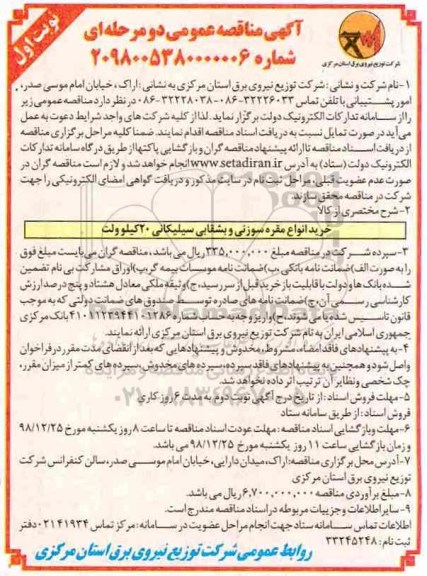 آگهی مناقصه عمومی دو مرحله ای
شماره ۲۰۹۸۰۰۵۳۸۰۰۰۰۰۰۶
نوبت اول
شرکت توزیع نیروی برق استان مرکزی
۱-نام شرکت و نشانی : شرکت توزیع نیروی برق استان مرکزی به نشانی : اراک ، خیابان امام موسی صدر،
امور پشتیبانی با تلفن تماس ۳۲۲۲۶۰۳۳-۰۸۶ ۳۲۲۲۸۰۳۸-۰۸۶ در نظر دارد مناقصه عمومی زیر
را از سامانه تدارکات الکترونیک دولت برگزار نماید. لذا از کلیه شرکت های واجد شرایط دعوت به عمل
می آید در صورت تمایل نسبت به دریافت اسناد مناقصه اقدام نمایند. ضمنا کلیه مراحل برگزاری مناقصه
از دریافت اسناد مناقصه تا ارائه پیشنهاد مناقصه گران و بازگشایی پاکتها از طریق درگاه سامانه تدارکات
الکترونیک دولت (ستاد) به آدرس www.setadiran.ir انجام خواهد شد و لازم است مناقصه گران در
صورت عدم عضویت قبلی، مراحل ثبت نام در سایت مذکور و دریافت گواهی امضای الکترونیکی را جهت
شرکت در مناقصه محقق سازند
۲-شرح مختصری از کالا :
خرید انواع مقره سوزنی و بشقابی سیلیکانی ۲۰کیلو ولت
۳-سپرده شرکت در مناقصه مبلغ ۳۳۵,۰۰۰,۰۰۰ریال می باشد، مناقصه گران می بایست مبلغ فوق
را به صورت الف) ضمانت نامه بانکی ،ب)ضمانت نامه موسسات بیمه گر پ)اوراق مشارکت بی نام تضمین
شده بانک ها و دولت با قابلیت باز خرید قبل از سررسید، ج)وثیقه ملکی معادل هشتاد و پنج درصد ارزش
کارشناسی رسمی آن،چ)ضمانت نامه های صادره توسط صندوق های ضمانت دولتی که به موجب
جمهوری اسلامی ایران به نام شرکت توزیع نیروی برق استان مرکزی ارائه نمایند.
۴-به پیشنهادهای فاقد امضاء، مشروط، مخدوش و پیشنهادهایی که بعد از انقضای مدت مقرر در فراخوان
واصل شود و همچنین به پیشنهادهای فاقد سپرده، سپرده های مخدوش، سپرده های کمتر از میزان مقرر،
چک شخصی و نظایر آن ترتیب اثر داده نخواهد شد.
۵-مهلت فروش اسناد : از تاریخ درج آگهی نوبت دوم به مدت ۶ روز کاری
فروش اسناد : از طریق سامانه ستاد
۶-مهلت و بازگشایی اسناد مناقصه : مهلت عودت اسناد مناقصه تا ساعت ۸ روز یکشنبه مورخ ۹۸/۱۲/۲۵
و زمان بازگشایی ساعت ۱۱ روز یکشنبه مورخ ۹۸/۱۲/۲۵ می باشد.
۷-آدرس محل برگزاری مناقصه: اراک،میدان دارایی، خیابان امام موسی صدر، سالن کنفرانس شرکت
توزیع نیروی برق استان مرکزی
۸-مبلغ برآوردی مناقصه ۶,۷۰۰,۰۰۰,۰۰۰ریال می باشد.
۹-سایر اطلاعات و جزییات مربوطه در اسناد مناقصه مندرج است.
اطلاعات تماس سامانه ستاد جهت انجام مراحل عضویت در سامانه: مرکز تماس ۰۲۱۴۱۹۳۴ دفتر
ثبت نام : ۳۳۲۴۵۲۴۸
روابط عمومی شرکت توزیع نیروی برق استان مرکزی